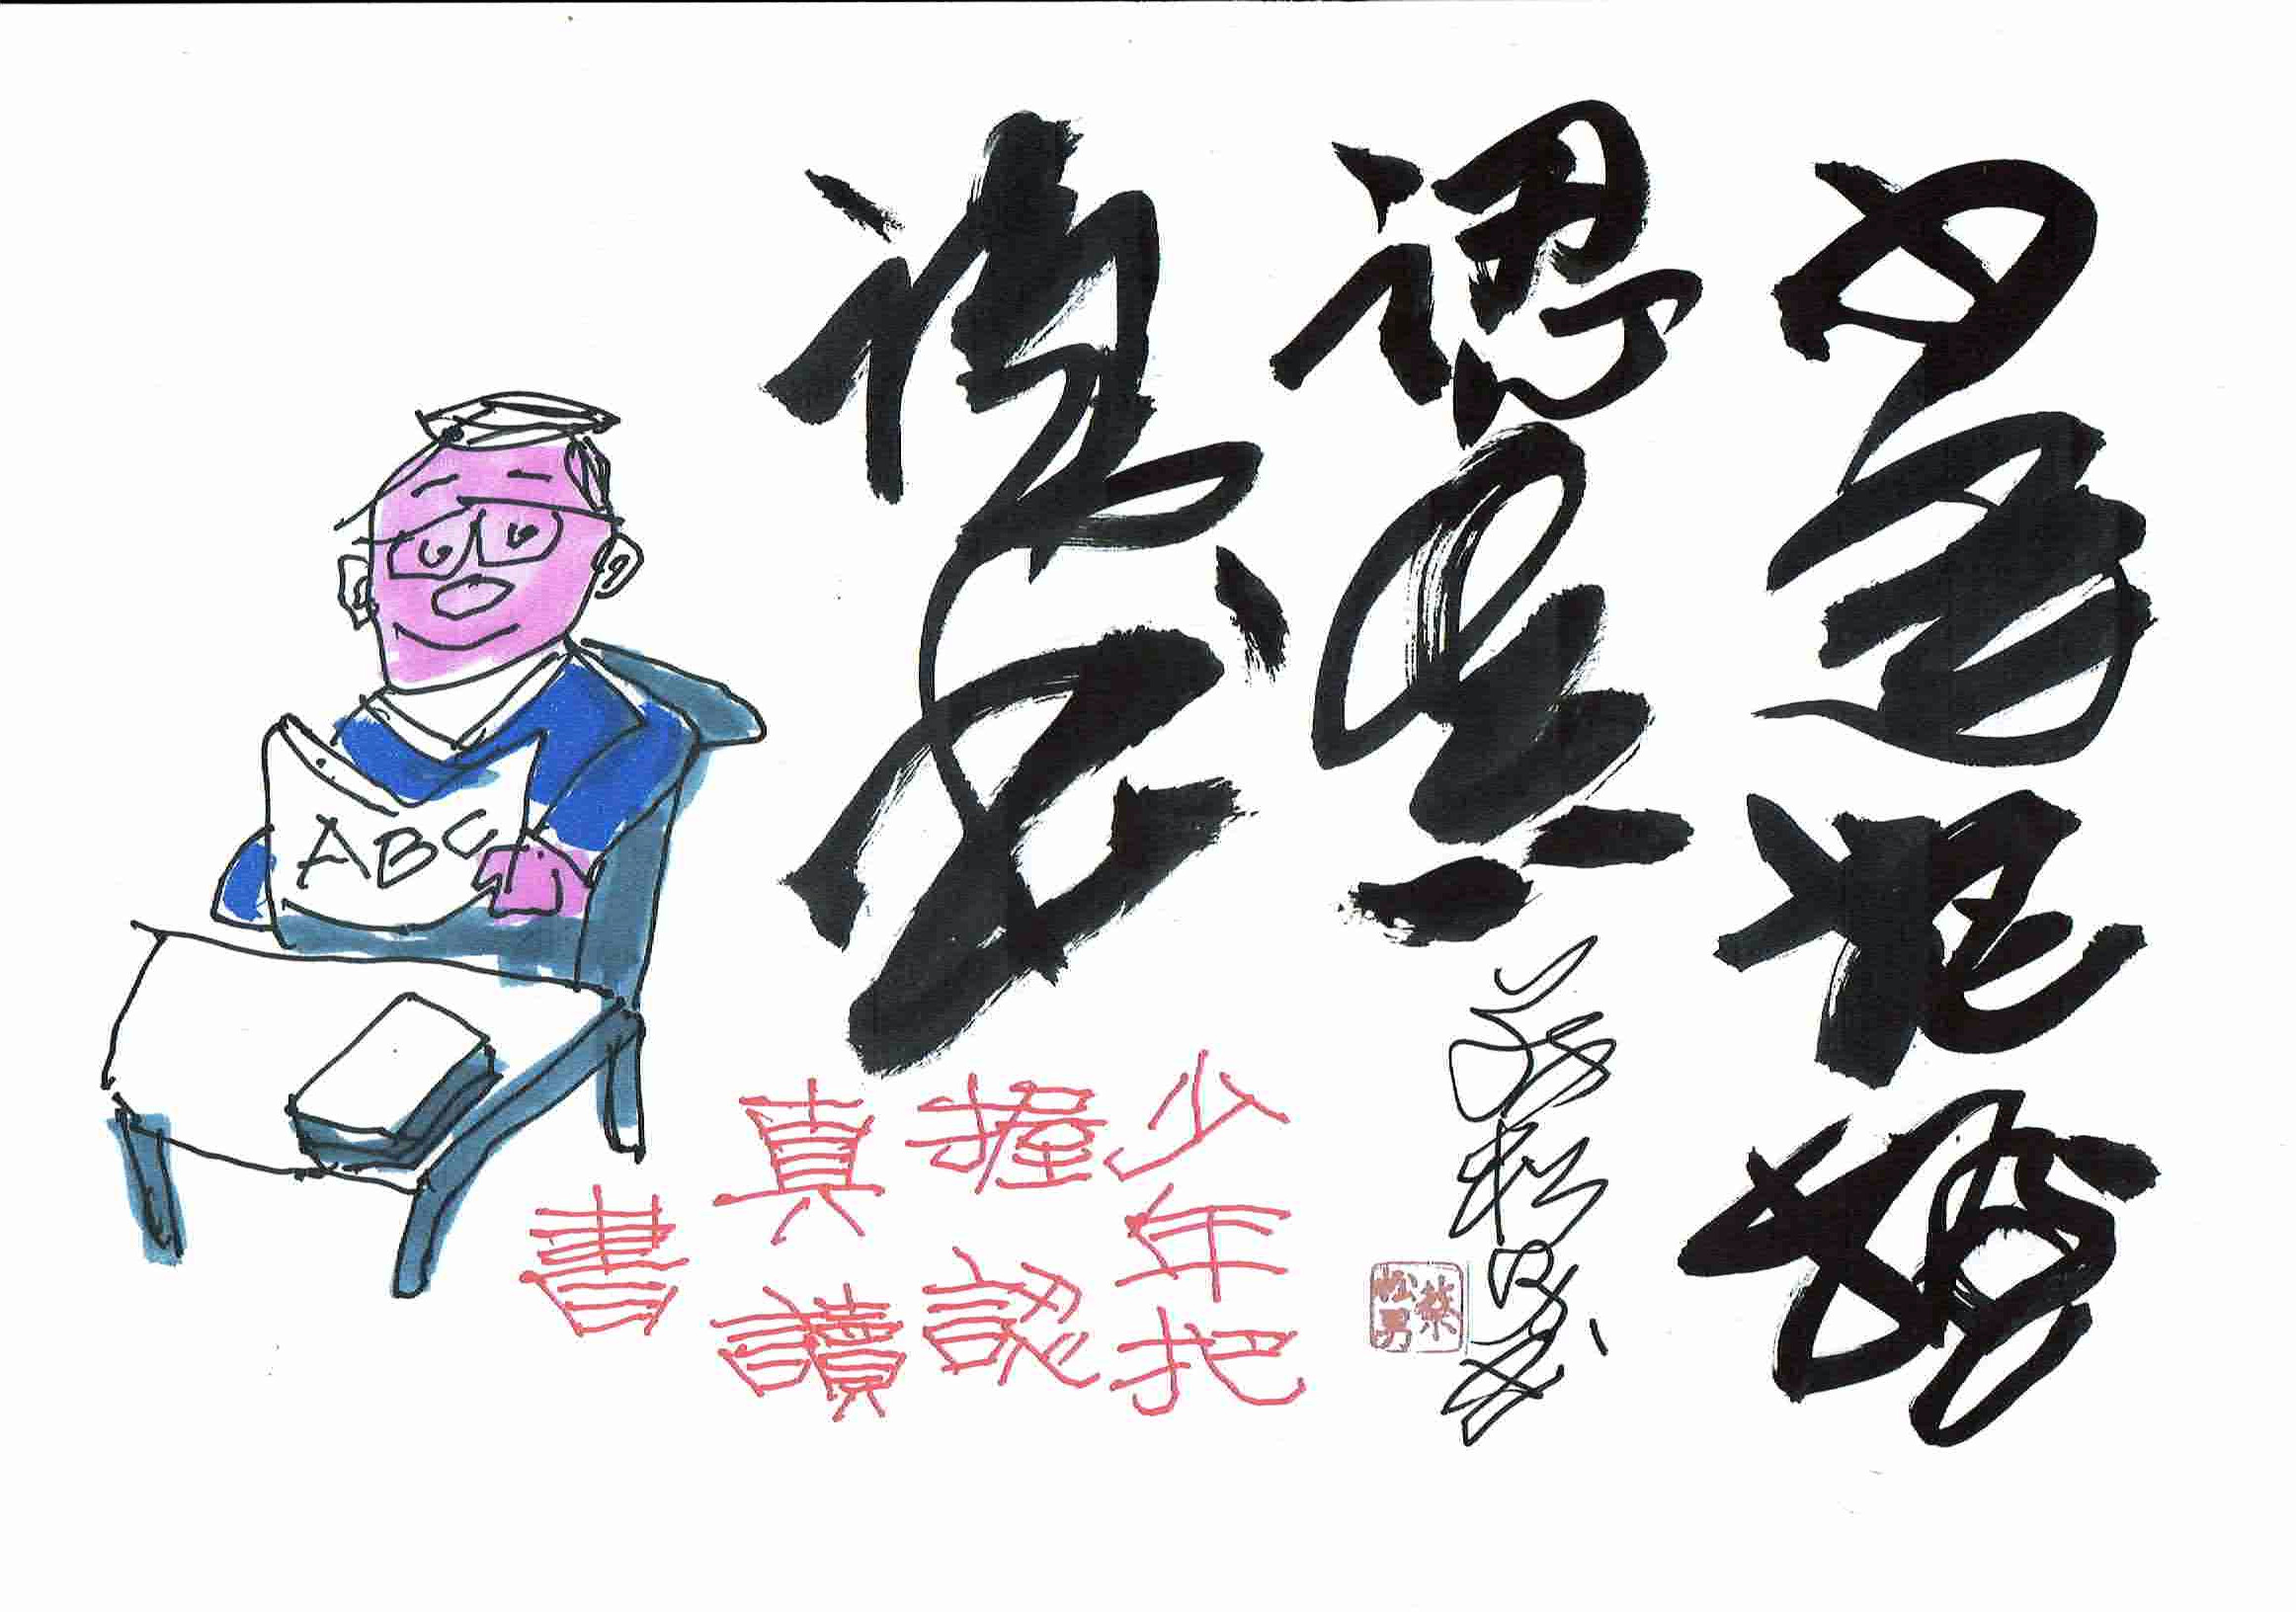 少年把握
認真
讀書
蔡松男
蔡松男
少年把
握認
真讀
書
ABC